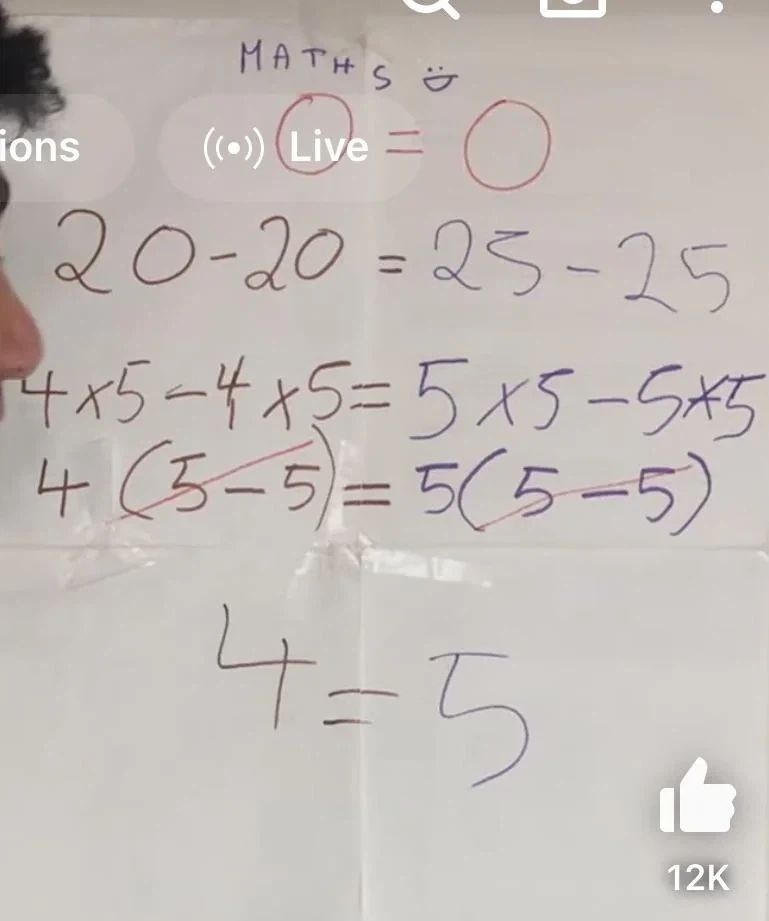 MATHS
ions
Live
0 = 0
20-20 = 25-25
4×5-4×5=5×5-5×5
4(5-5)=5(5-5)
4=5
12K